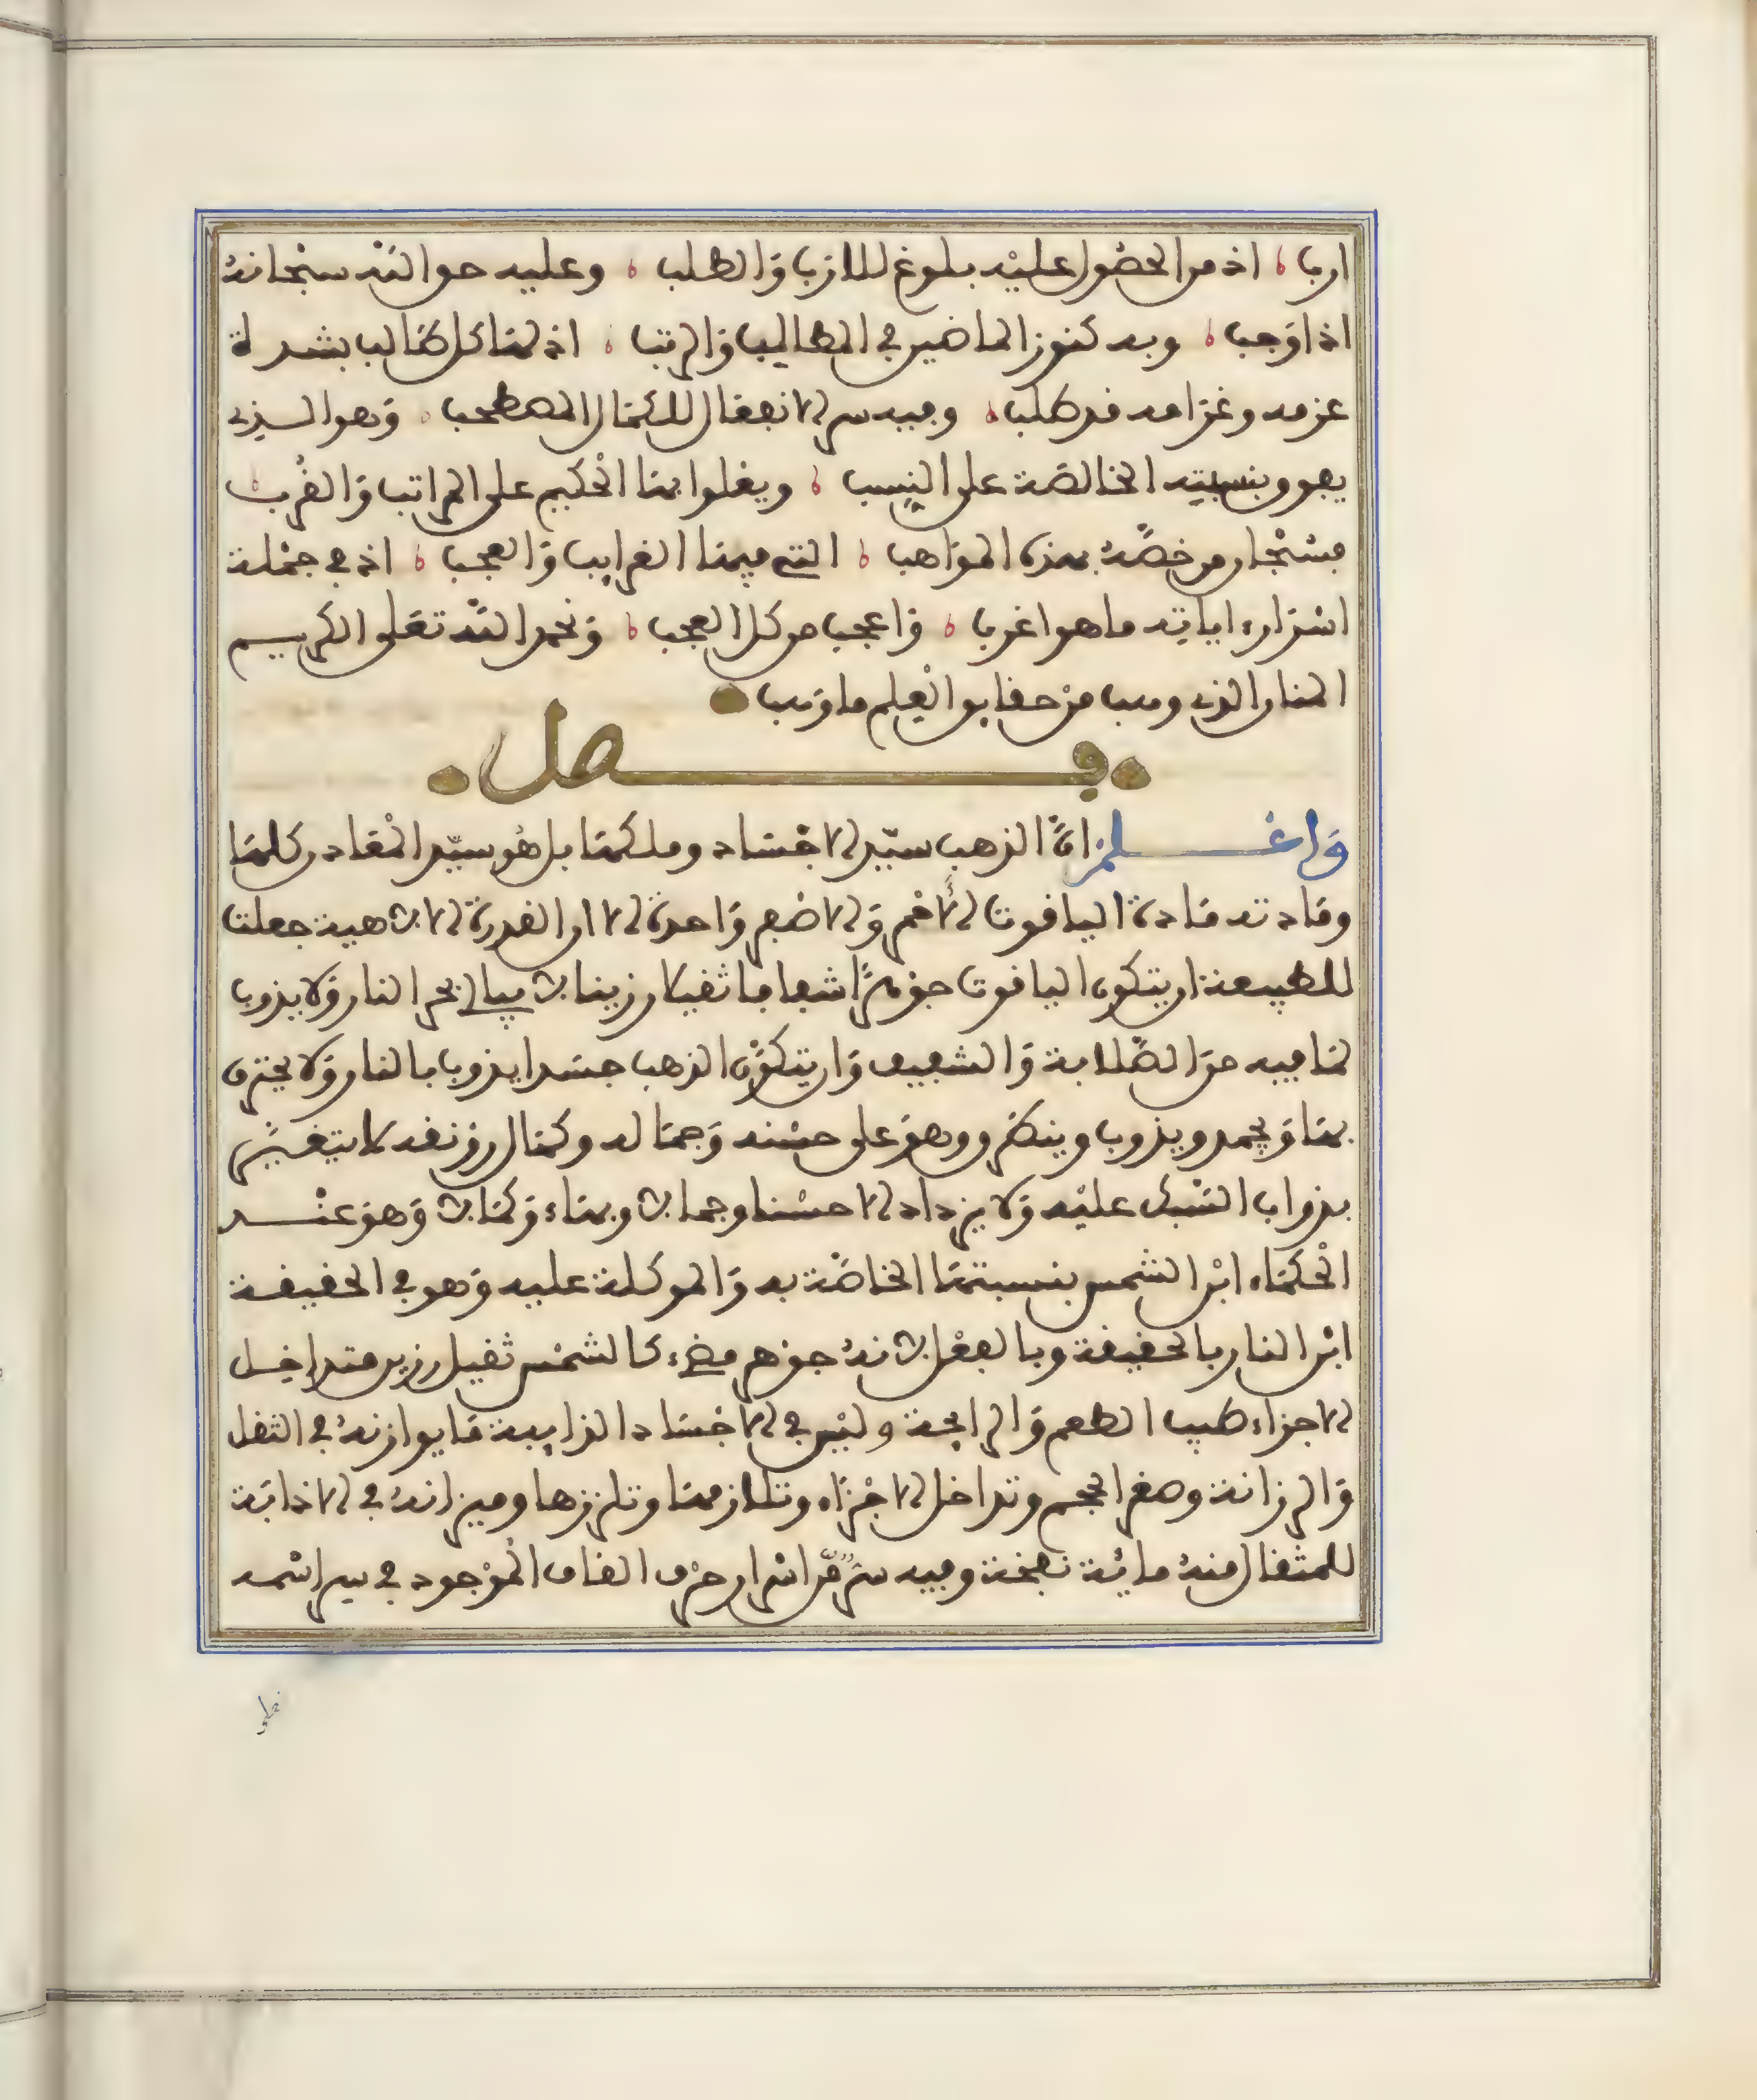 ارب اذ من الحصول عليه بلوغ للارب والطلب وعليه حق الله سبحانه
اذ اوجب وبه كنوز الماضين في المطالب والرتب اذ لها كل طالب بشدة
عزمه وغرامه قد طلب وفيه سر الانفعال للكمال المصطحب وهو الـذي
يفوق بنسبته الخالصة على النسب ويعلوا بها الحكيم على المراتب والقرب
فسبحان من خصه بهذه المواهب التي فيها الغرايب والعجب اذ في جملة
اسراره اياته ما هو اغرب واعجب من كل العجب ونحمد الله تعلى الكريـم
المنان الذي وهب من حقايق العلم ما وهب
فــصل
واعــلم ان الذهب سيد الاجساد وملكها بل هو سيد المعادن كلها
ومادته مادة الياقوت الاحمر والاصفر واحدة الا ان القدرة الالاهية جعلت
للطبيعة ان يتكون الياقوت جوهرا شفافا ثقيلا رزينا لا يبالي بحر النار ولا يذوب
لما فيه من الصلابة والشفيف وان يتكون الذهب جسدا يذوب بالنار ولا يحترق
بها ويجمد ويذوب وينطرق وهو على حسنه وجماله وكمال رونقه لا يتغيـر
بذواب السبك عليه ولا يزداد الا حسنا وجمالا وبهاء وكمالا وهو عنــد
الحكماء ابن الشمس بنسبتها الخاصة به والموكلة عليه وهو في الحقيقـة
ابن النار بالحقيقة وبالفعل لانه جوهر مضيء كالشمس ثقيل رزين متداخـل
الاجزاء طيب الطعم والرايحة وليس في الاجساد الذايبة ما يوازنه في الثقل
والرزانة وصغر الحجم وتداخل الاجزاء وتلازمها وتلززها وميزانه في الاذابة
للمثقال منه مائة نفخة وفيه سر من اسرار حرف القاف الموجود في سر اسمه